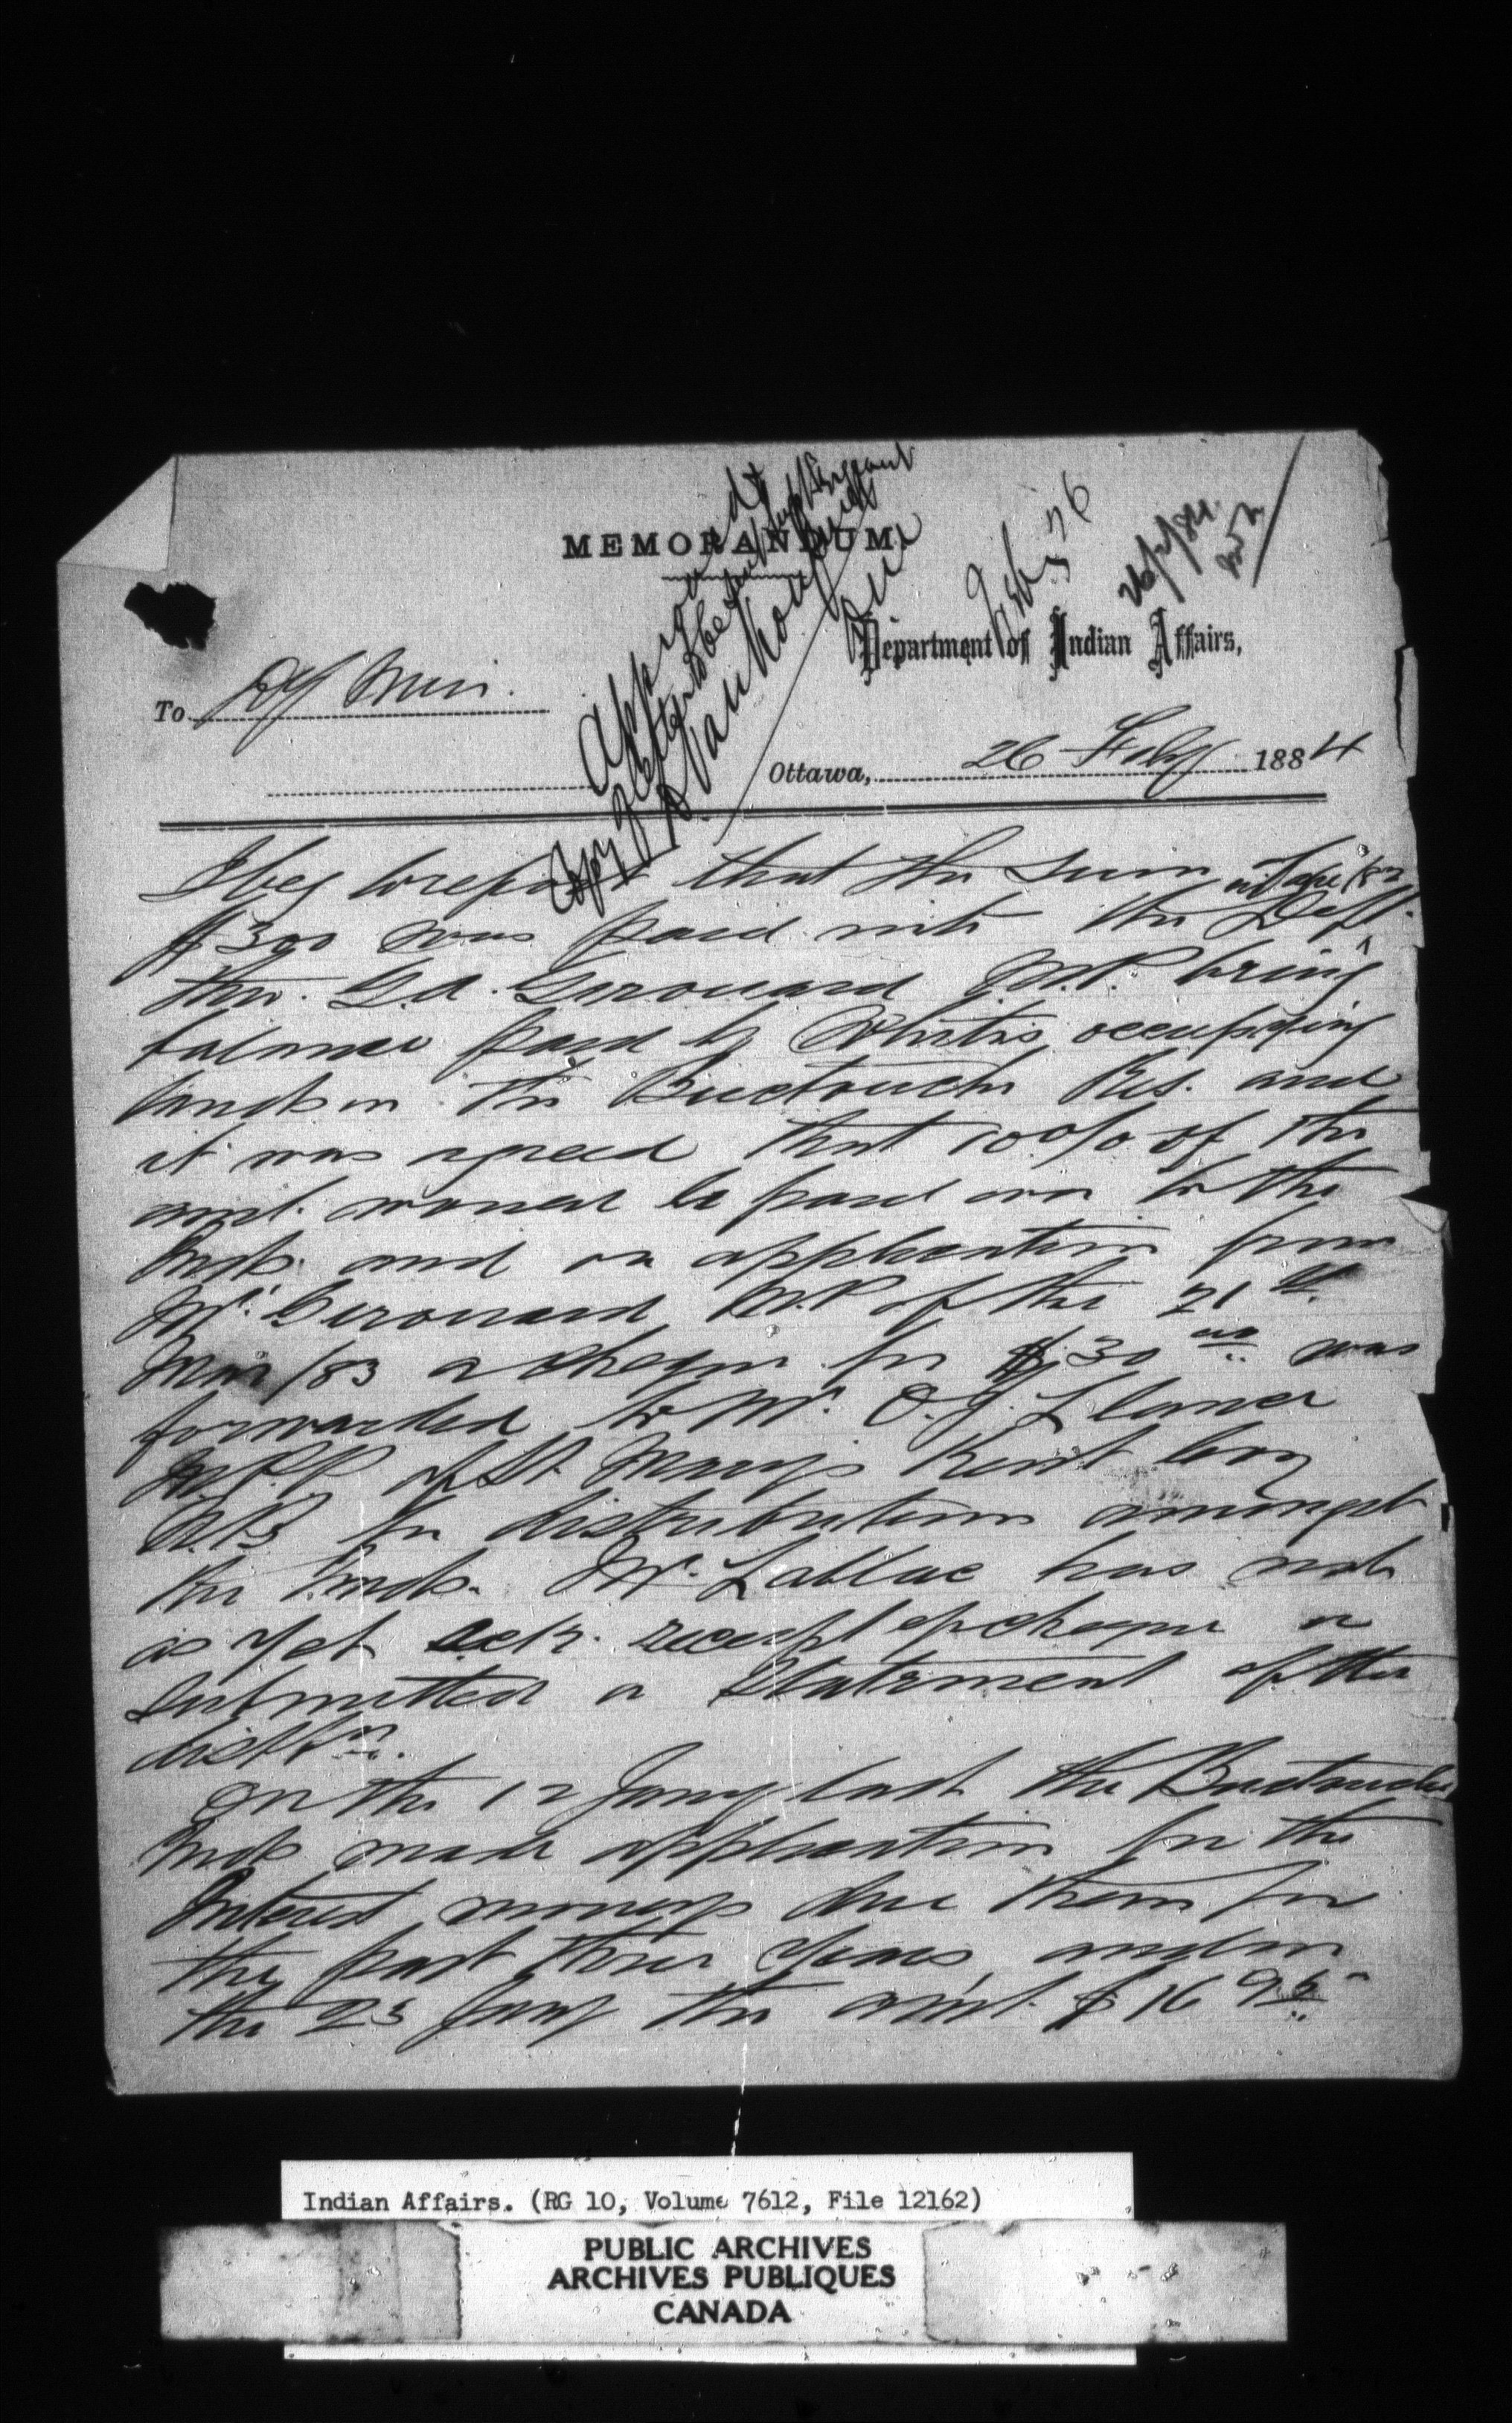 MEMORANDUM
Department of Indian Affairs,
To Dy Min.
Ottawa, 26 Feby 1884
I beg to report that the sum
$300 was paid into the Dept.
thro. G.A. Girouard M.P. being
balance paid by Whites occupying
lands in the Buctouche Res. and
it was agreed that 10 o/o of the
amt. would be paid over to the
Inds. and on application from
Mr. Girouard M.P. of the 21st
Mar/83 a cheque for $30 was
forwarded to Mr. O.J. LeBlanc
M.P.P. of St. Marys Kent Coy
N.B. for distribution amongst
the Inds. Mr. LeBlanc has not
as yet ack. receipt of cheque or
submitted a statement of the
distbn.
On the 12 Jany last the Buctouche
Inds made application for the
Interest moneys due them for
the past three years and on
the 23 Jany the amt. $16
Indian Affairs. (RG 10, Volume 7612, File 12162)
PUBLIC ARCHIVES
ARCHIVES PUBLIQUES
CANADA